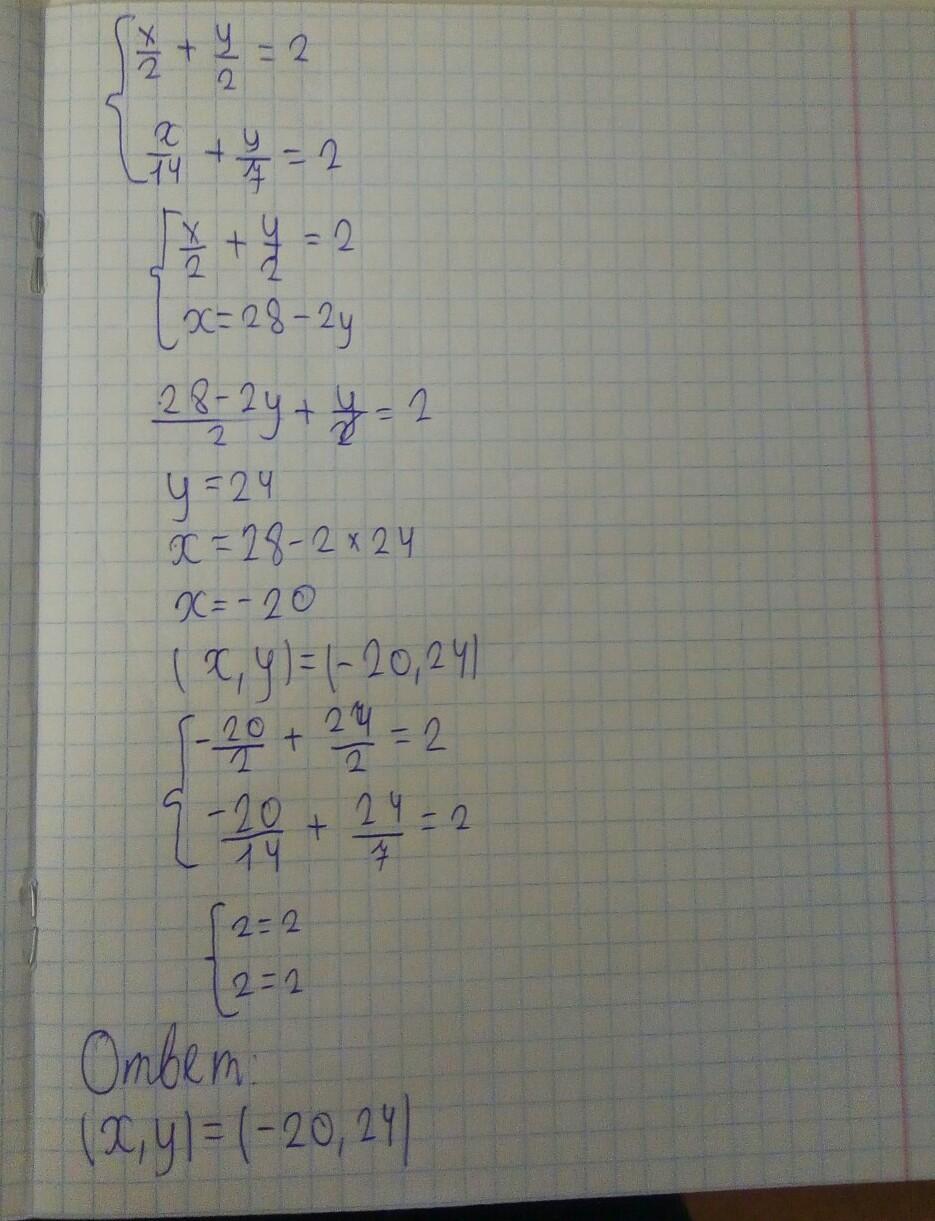 x/2 + y/2 = 2
x/14 + y/7 = 2
x/2 + y/2 = 2
x = 28 - 2y
28 - 2y/2 + y/2 = 2
y = 24
x = 28 - 2 × 24
x = -20
(x, y) = (-20, 24)
-20/2 + 24/2 = 2
-20/14 + 24/7 = 2
2 = 2
2 = 2
Ответ:
(x, y) = (-20, 24)